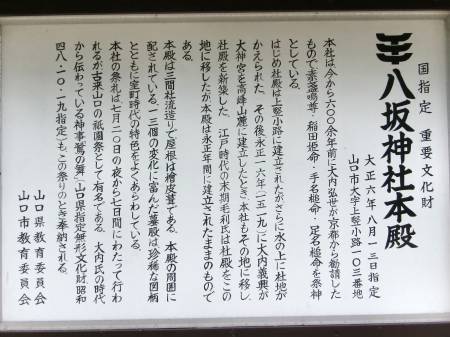 国指定 重要文化財
八坂神社本殿
大正六年八月一三日指定
山口市大字上竪小路一〇三番地
本社は今から六〇〇余年前に大内弘世が京都から勧請した
もので素盞嗚尊・稲田姫命・手名槌命・足名槌命を祭神
としている。
はじめ社殿は上竪小路に建立されたがさらに水の上に社地が
かえられた。その後永正一六年(一五一九)に大内義興が
大神宮を高峰山麓に建立したとき、本社もその地に移し、
社殿を新築した。江戸時代の末期毛利氏は社殿をこの
地に移したが本殿は永正年間に建立されたままのもので
ある。
本殿は三間社流造りで屋根は檜皮葺である。本殿の周囲に
配されている一三個の変化に富んだ蟇股は珍稀な図柄
とともに室町時代の特色をよくあらわしている。
本社の祭礼は七月二〇日の夜から七日間にわたって行わ
れるが古来山口の祇園祭として有名である。大内氏の時代
から伝わっている神事鷺の舞(山口県指定無形文化財昭和
四八・一〇・一九指定)も、この祭りのとき奉納される。
山口県教育委員会
山口市教育委員会